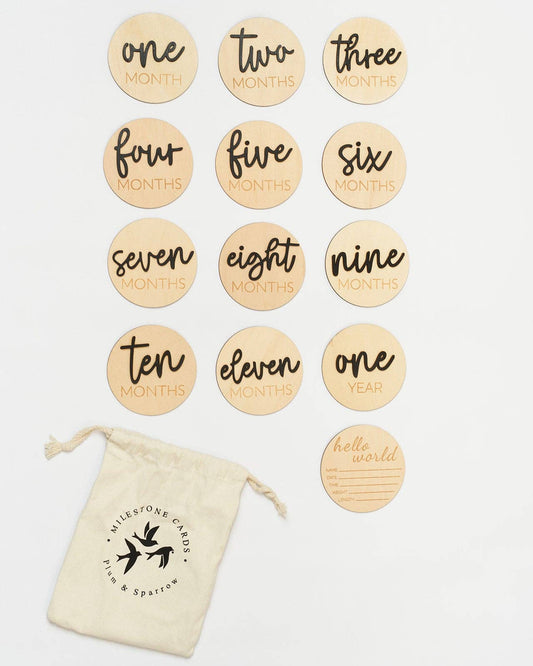 one
MONTH
two
MONTHS
three
MONTHS
four
MONTHS
five
MONTHS
six
MONTHS
seven
MONTHS
eight
MONTHS
nine
MONTHS
ten
MONTHS
eleven
MONTHS
one
YEAR
hello
world
NAME
DATE
TIME
WEIGHT
LENGTH
• MILESTONE CARDS •
Plum & Sparrow